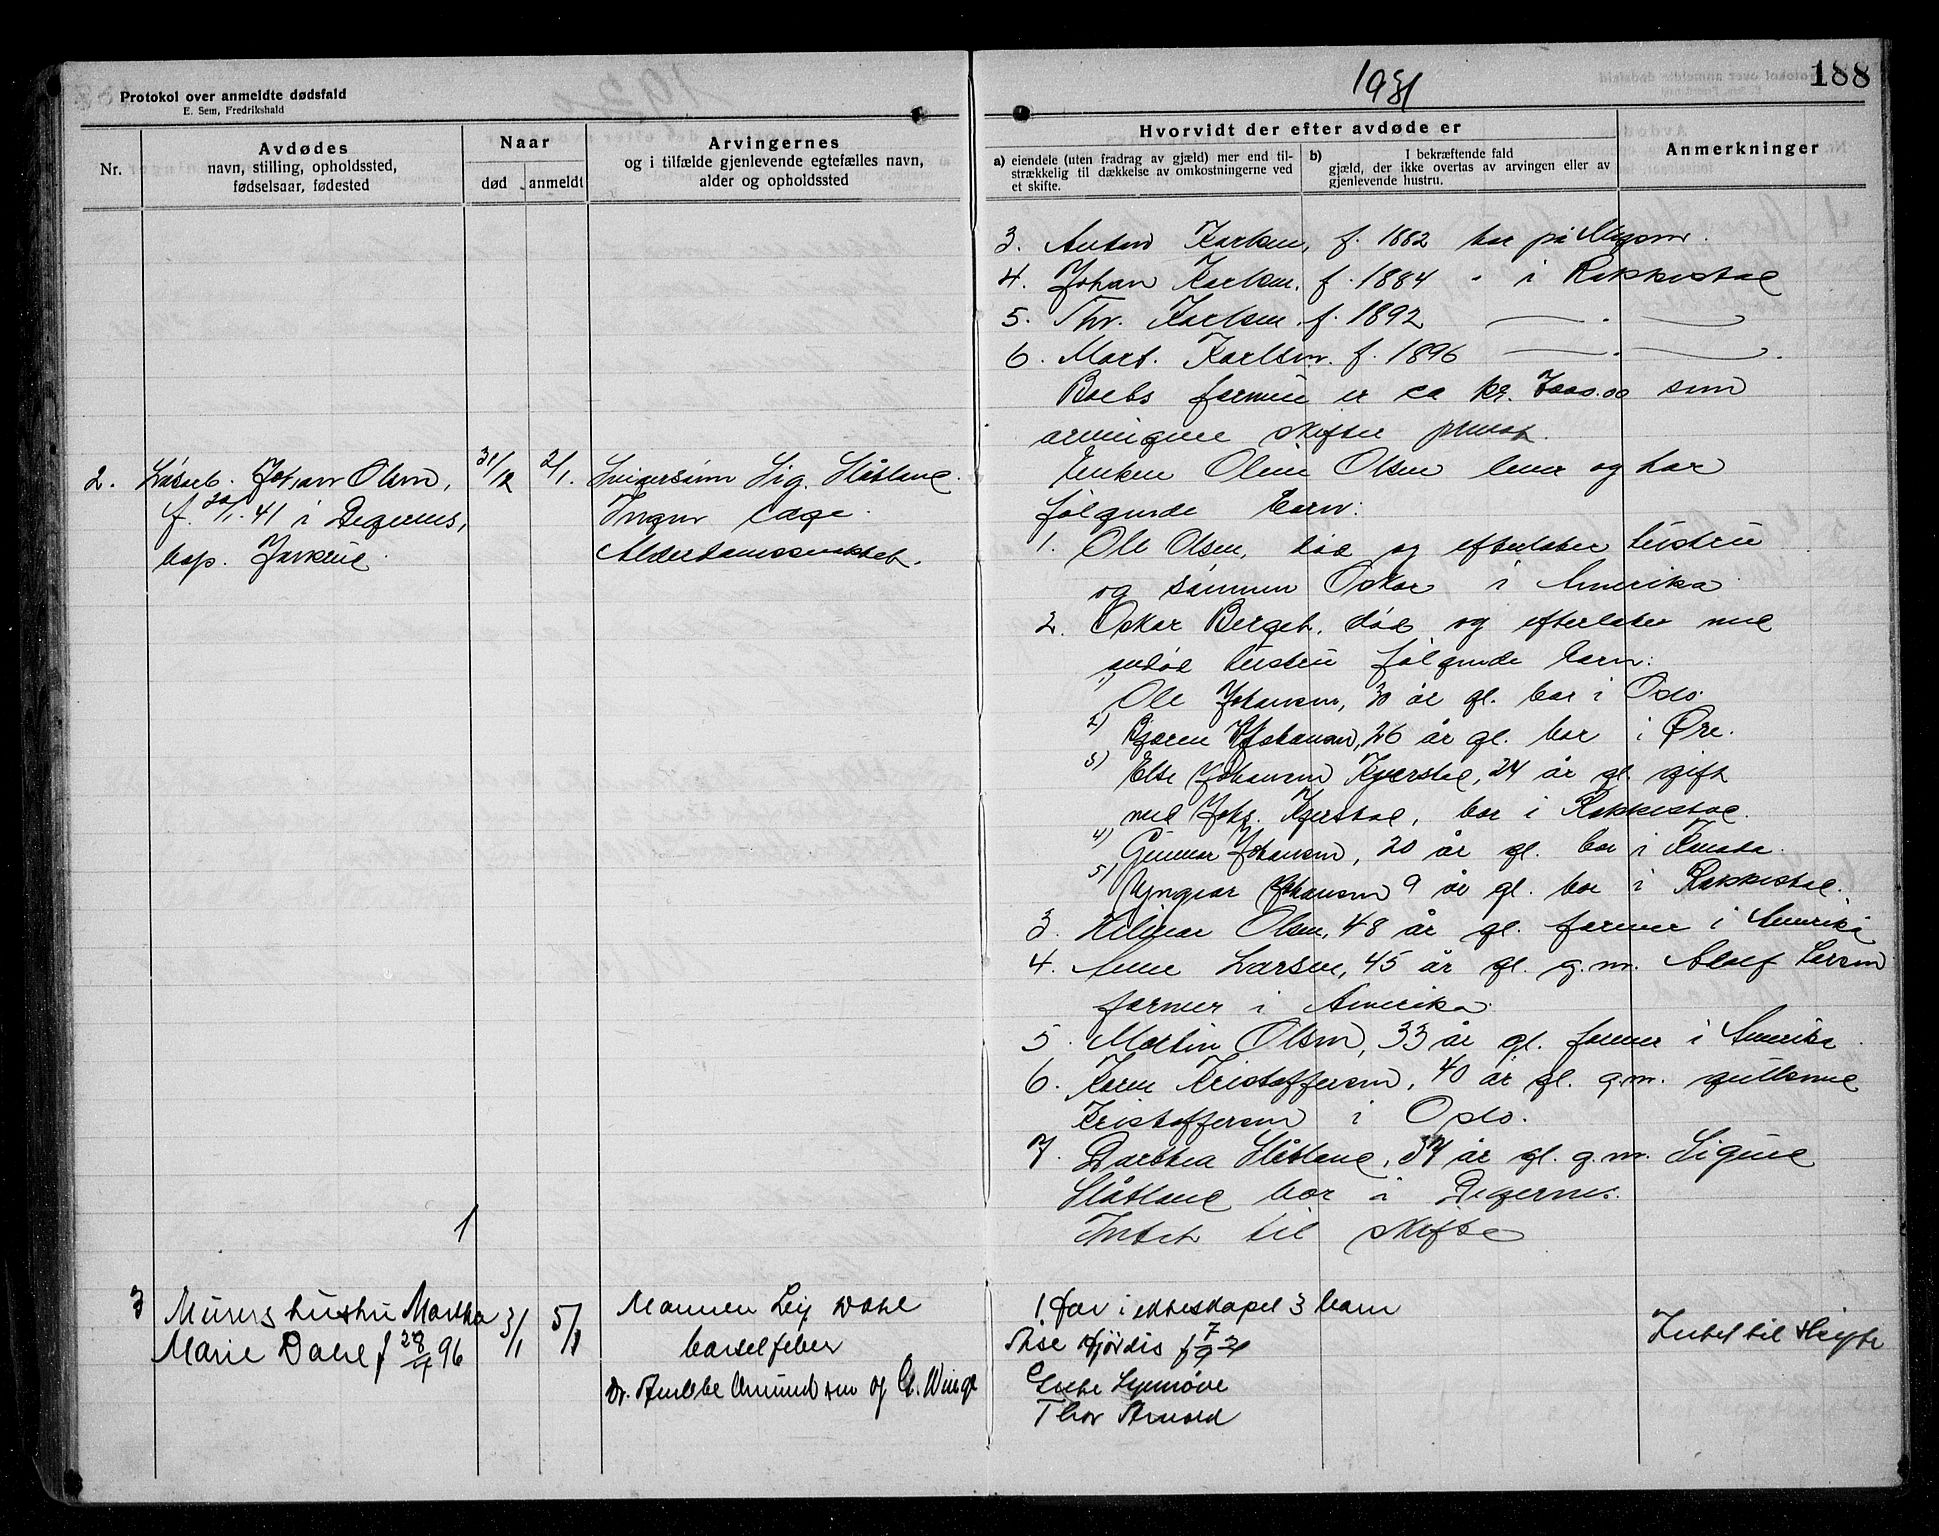 Protokol over anmeldte dødsfald
E. Sem, Fredrikshald
1931
188
Nr.
Avdødes
navn, stilling, opholdssted,
fødselsaar, fødested
Naar
død
anmeldt
Arvingernes
og i tilfælde gjenlevende egtefælles navn,
alder og opholdssted
Hvorvidt der efter avdøde er
a) eiendele (uten fradrag av gjæld) mer end til-
strækkelig til dækkelse av omkostningerne ved
et skifte.
b) I bekræftende fald
gjæld, der ikke overtas av arvingen eller av
gjenlevende hustru.
Anmerkninger
3. Anton Karlsen, f. 1882 bor på Mysen.
4. Johan Karlsen, f. 1884 " i Rakkestad
5. Thv. Karlsen, f. 1892
6. Mart. Karlsen. f. 1896
Boets formue er ca kr. 7000.00 som
arvingene skifter privat.
2. Løsarb. Johan Olsen,
f. 20/1.41 i Degernes,
bop. Jaavkrue
31/12
2/1.
Svigersønn Sig. Slåtland.
Ingen læge.
Alderdomssvakhet.
Enken Oline Olsen lever og har
følgende barn:
1. Ole Olsen, død og efterlater hustru
og sønnen Oskar i Amerika
2. Oskar Berget, død og efterlater med
avdød hustru følgende barn:
1) Ole Johansen, 30 år gl. bor i Oslo.
2) Bjarne Johansen, 26 år gl. bor i Øre.
3) Else Johansen Kjerstad, 24 år gl. gift
med Johs. Kjerstad, bor i Rakkestad.
4) Gunnar Johansen, 20 år gl. bor i Kanada.
5) Yngvar Johansen 9 år gl. bor i Rakkestad.
3. Hilmar Olsen, 48 år gl. farmer i Amerika
4. Anne Larsen, 45 år gl. g.m. Adolf Larsen
farmer i Amerika.
5. Martin Olsen, 33 år gl. farmer i Amerika
6. Karen Kristoffersen, 40 år gl. g.m. gullsmed
Kristoffersen i Oslo.
7. Dorthea Slåtland, 37 år gl. g.m. Sigurd
Slåtland bor i Degernes.
Intet til skifte
1
3 Murers hustru Martha
Marie Dahl f 28/4 96
3/1
5/1
Mannen Leif Dahl
barselfeber
Dr. Amundsen og G. Winge
I sor i ekteskapet 3 barn
Åse Hjørdis f 7/9 21
Grete Synnøve
Thor Arnold
Intet til skifte